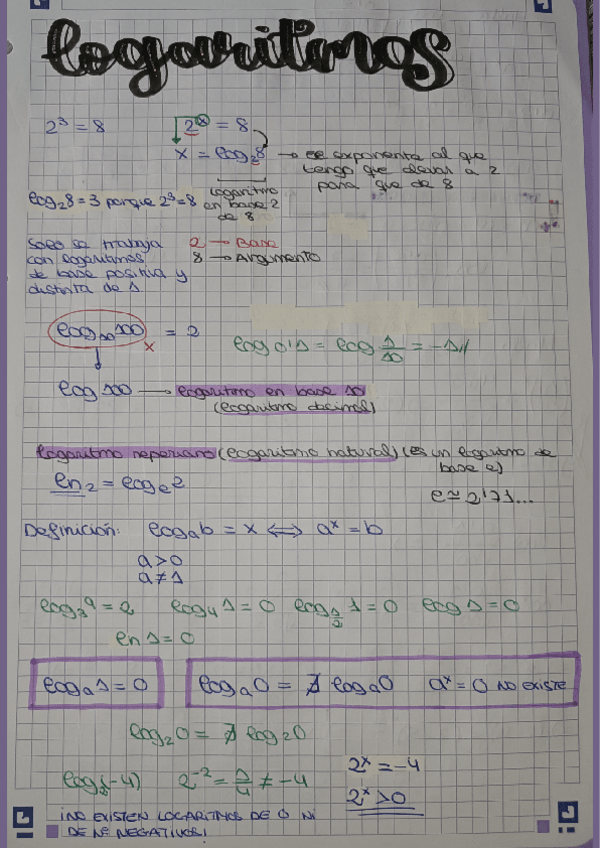 Logaritmos
2³ = 8
2ˣ = 8
x = log₂8 → es exponente al que
tengo que elevar a 2
para que de 8
log₂8 = 3 porque 2³ = 8
Logaritmo
en base 2
de 8
Solo se trabaja
con logaritmos
de base positiva y
distinta de 1
2 → Base
8 → Argumento
log₁₀100 = 2
x
log 0'1 = log 1/10 = -1//
log 100 → logaritmo en base 10
(logaritmo decimal)
logaritmo neperiano (logaritmo natural) (es un logaritmo de
base e)
ln₂ = logₑ2
e ≈ 2'71...
Definición: logₐb = x ⟺ aˣ = b
a > 0
a ≠ 1
log₃9 = 2 log₄1 = 0 log½ 1 = 0 log 1 = 0
ln 1 = 0
logₐ1 = 0
logₐ0 = ∄ logₐ0 aˣ = 0 NO EXISTE
log₂0 = ∄ log₂0
2⁻² = 1/4 ≠ -4
2ˣ = -4
2ˣ > 0
¡NO EXISTEN LOGARITMOS DE 0 NI
DE Nº NEGATIVOS!